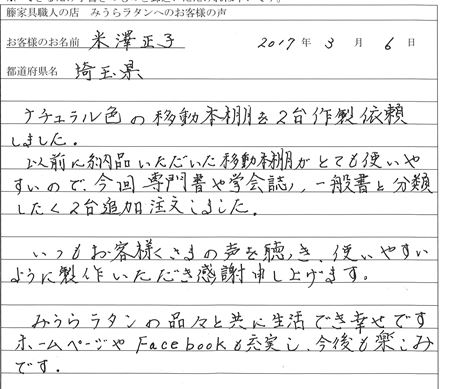 藤家具職人の店　みうらラタンへのお客様の声
お客様のお名前　米澤正子　2017年 3月 6日
都道府県名　埼玉県
ナチュラル色の移動本棚を2台作製依頼
しました。
以前に納品いただいた移動本棚がとても使いや
すいので、今回専門書や学会誌、一般書と分類
したく2台追加注文しました。
いつもお客様くさまの声を聴き、使いやすい
ように製作いただき感謝申し上げます。
みうらラタンの品々と共に生活でき幸せです
ホームページやFacebookも充実し、今後も楽しみ
です。